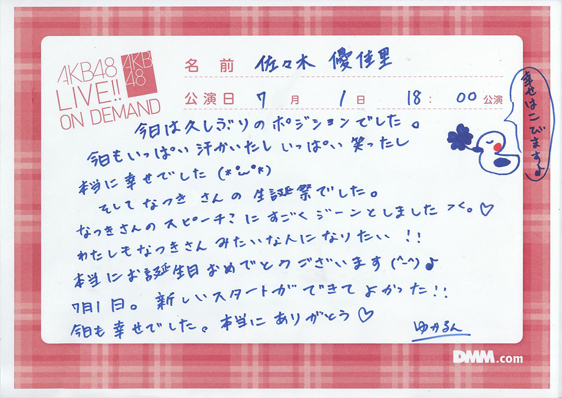 AKB48
LIVE!!
ON DEMAND
AKB
48
名前 佐々木 優佳里
公演日 7月 1日 18:00公演
幸せはこびます♪
今日は久しぶりのポジションでした。
今日もいっぱい汗かいたし いっぱい 笑ったし
本当に幸せでした (*^^*)
そして なつき さんの 生誕祭でした。
なつきさんの スピーチ に すごく ジーンと しました >< 。♡
わたしも なつきさん みたいな人に なりたい !!
本当に お誕生日 おめでとうございます (^-^)♪
7月1日。 新しいスタートが できて よかった!!
今日も 幸せでした。 本当に ありがとう ♡
ゆかるん
DMM.com